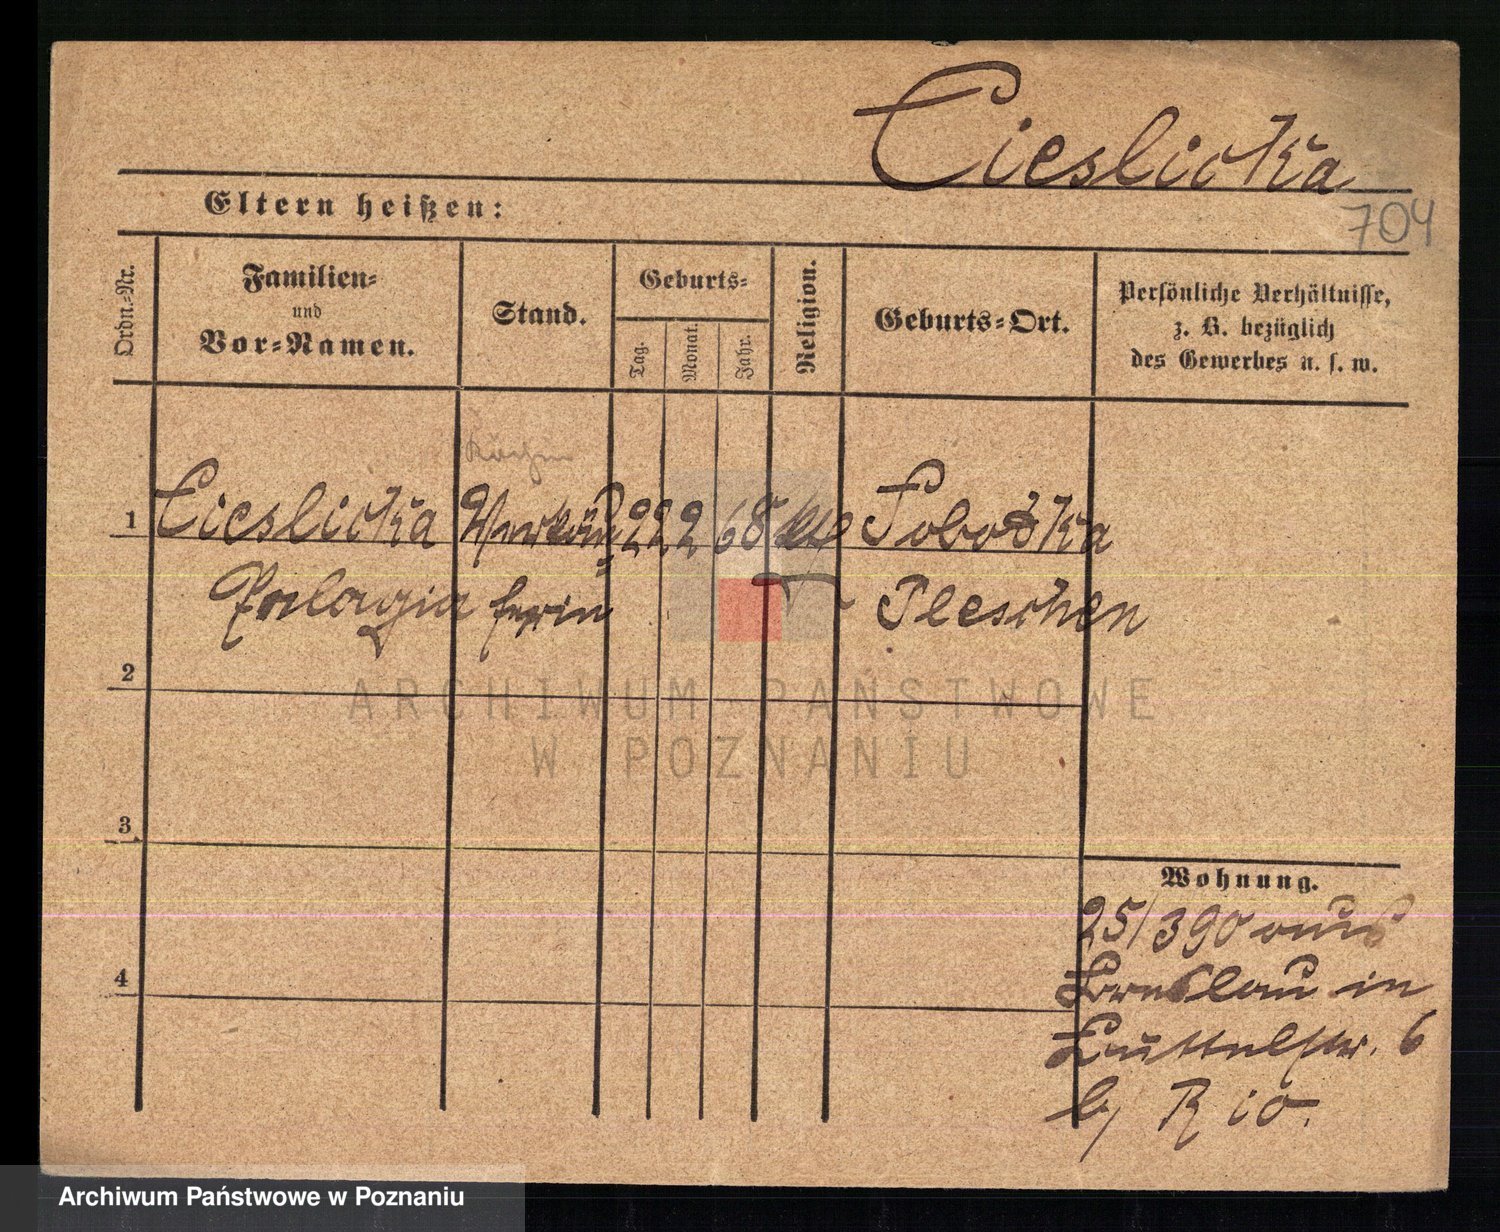 Cieslicka
704
Eltern heißen:
Ordn.-Nr.
Familien-
und
Vor-Namen.
Stand.
Geburts-
Tag.
Monat.
Jahr.
Religion.
Geburts-Ort.
Persönliche Verhältnisse,
z. B. bezüglich
des Gewerbes u. s. w.
Köchin
1 Cieslicka Verkäu 22 2 68 kth Sobotka
Pelagia ferin Pleschen
2
ARCHIWUM PAŃSTWOWE
W POZNANIU
3
Wohnung.
25/3 90 aus
4 Breslau in
6
b/ Rio.
Archiwum Państwowe w Poznaniu